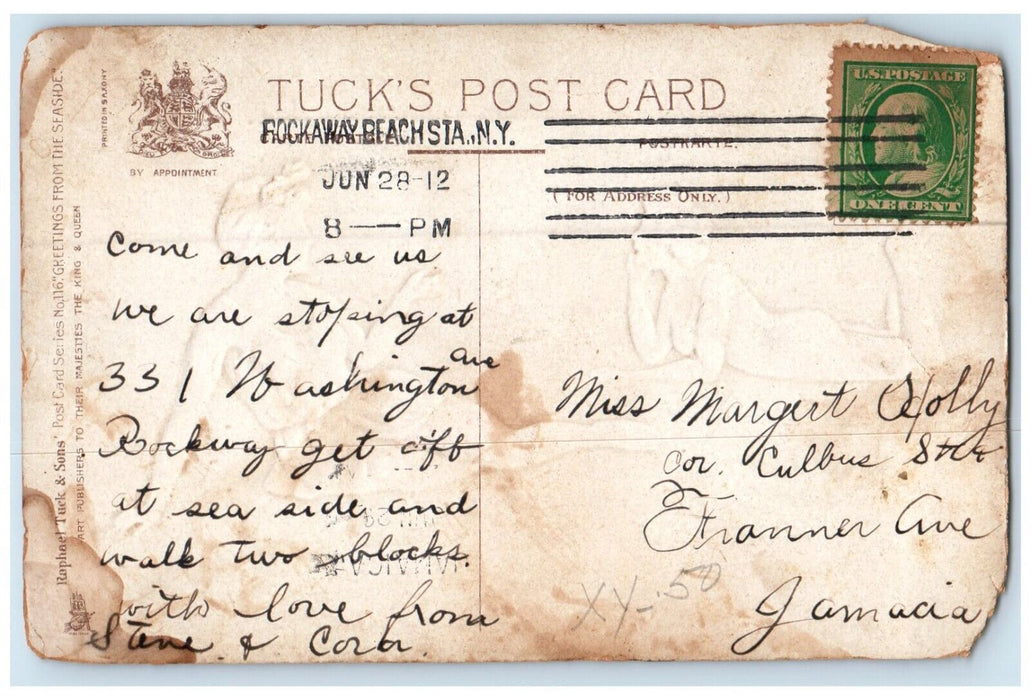 TUCK'S POST CARD
ROCKAWAY BEACH STA., N.Y.
JUN 28-12
8 — PM
POSTKARTE.
(FOR ADDRESS ONLY.)
U.S. POSTAGE
ONE CENT
BY APPOINTMENT
PRINTED IN SAXONY
Raphael Tuck & Sons' Post Card Series No. 116 "GREETINGS FROM THE SEASIDE."
ART PUBLISHERS TO THEIR MAJESTIES THE KING & QUEEN
Come and see us
we are stoping at
331 Washington Ave
Rockway get off
at sea side and
walk two blocks.
with love from
& Cora.
Miss Margert Holly
cor. Culbus
Ave
Jamacia
XY-.50
JAMAICA